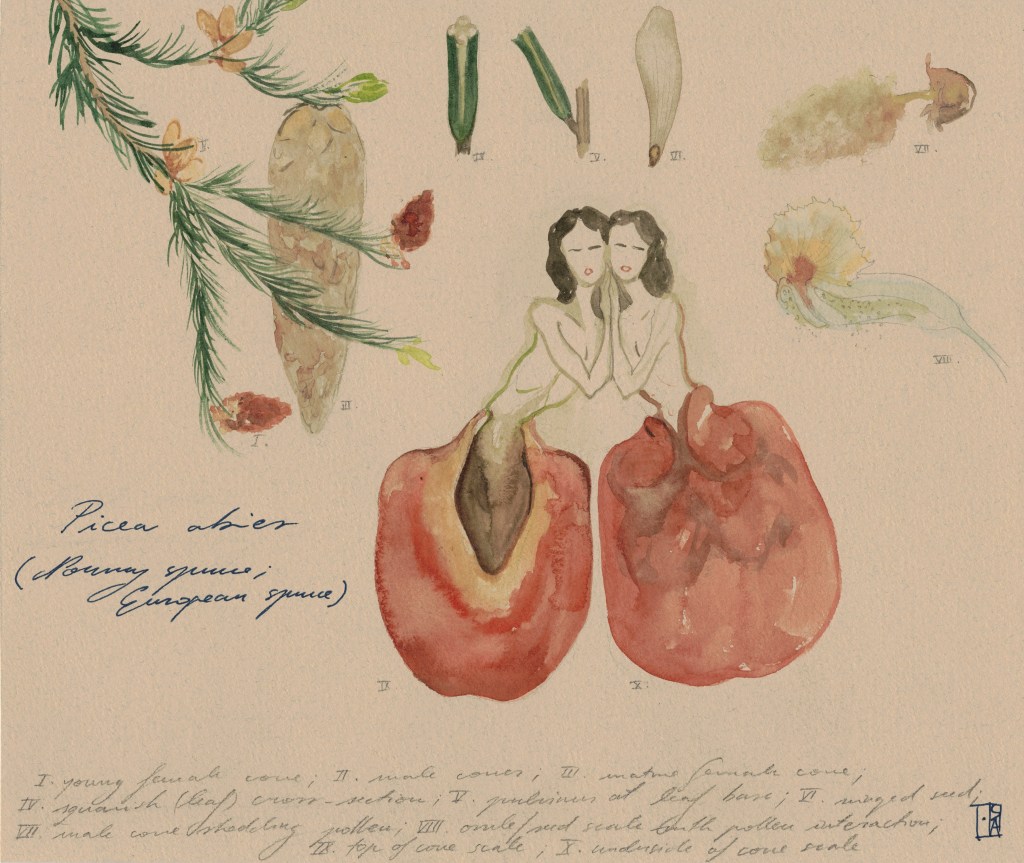 II.
IV
V.
VI.
VII.
III.
VIII.
I.
Picea abies
(Norway spruce;
European spruce)
IX
X.
I. young female cone; II. male cones; III. mature female cone;
IV. squarish (leaf) cross-section; V. pulvinus at leaf base; VI. winged seed;
VII. male cone shedding pollen; VIII. ovule/seed scale with pollen interaction;
IX. top of cone scale; X. underside of cone scale